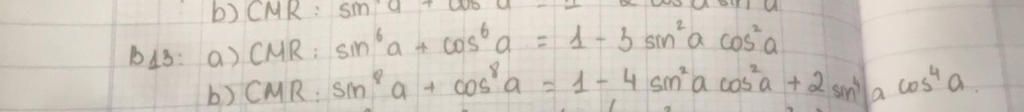 b) CMR: sin a + cos a = 1 2 cos a sin a
B13: a) CMR: sin⁶a + cos⁶a = 1 - 3 sin²a cos²a
b) CMR: sin⁸a + cos⁸a = 1 - 4 sin²a cos²a + 2 sin⁴a cos⁴a.